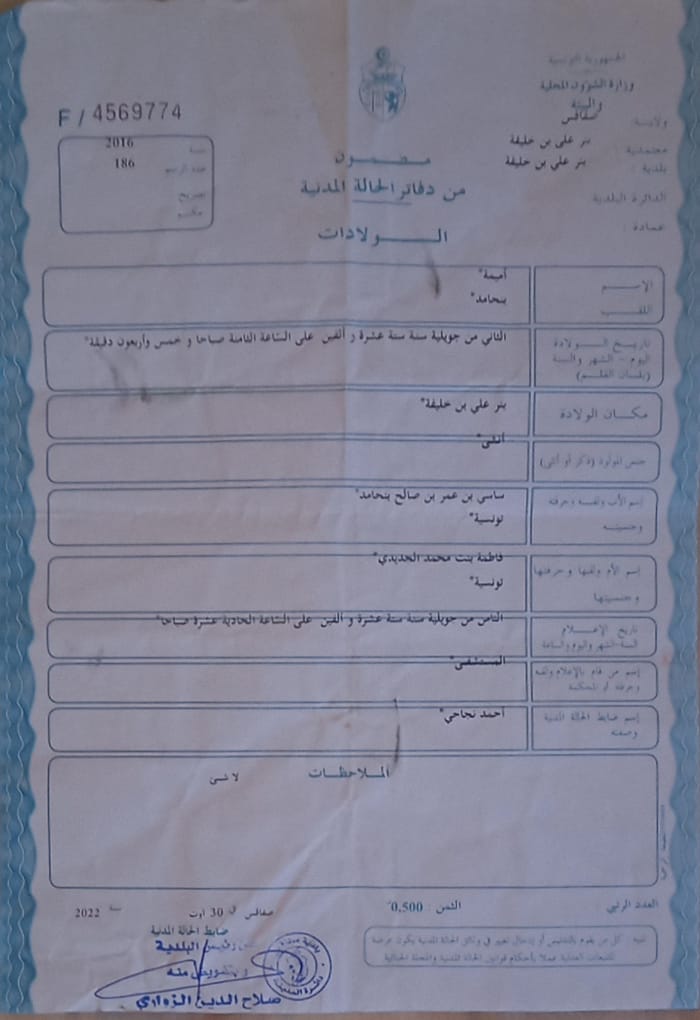 الجمهورية التونسية
وزارة الشؤون المحلية
والبيئة
ولاية: صفاقس
معتمدية: بئر علي بن خليفة
بلدية: بئر علي بن خليفة
الدائرة البلدية
عمادة:
F / 4569774
سنة 2016
عدد الرسم 186
تصريح
حكم
مضمون
من دفاتر الحالة المدنية
الولادات
الإسم أميمة*
اللقب بنحامد*
تاريخ الولادة الثاني من جويلية سنة ستة عشرة و ألفين على الساعة الثامنة صباحا و خمس وأربعون دقيقة*
اليوم - الشهر والسنة
(بلسان القلم)
مكان الولادة بئر علي بن خليفة*
جنس المولود (ذكر أو أنثى) أنثى*
إسم الأب ولقبه وحرفته ساسي بن عمر بن صالح بنحامد*
وجنسيته تونسية*
إسم الأم ولقبها وحرفتها فاطمة بنت محمد الحديدي*
وجنسيتها تونسية*
تاريخ الإعلام الثامن من جويلية سنة ستة عشرة و ألفين على الساعة الحادية عشرة صباحا*
السنة الشهر واليوم والساعة
إسم من قام بالإعلام ولقبه المستشفى*
وحرفته أو المحكمة
إسم ضابط الحالة المدنية أحمد نجاحي*
وصفته
الملاحظات
لا شئ
العدد الرتبي: الثمن : 0,500*
صفاقس في 30 أوت سنة 2022
ضابط الحالة المدنية
عن رئيس البلدية
وبتفويض منه
صلاح الدين الزواري
تنبيه : كل من يقوم بالتدليس أو إدخال تغيير في وثائق الحالة المدنية يكون عرضة
للتبعات العدلية عملا بأحكام قوانين الحالة المدنية والمجلة الجنائية